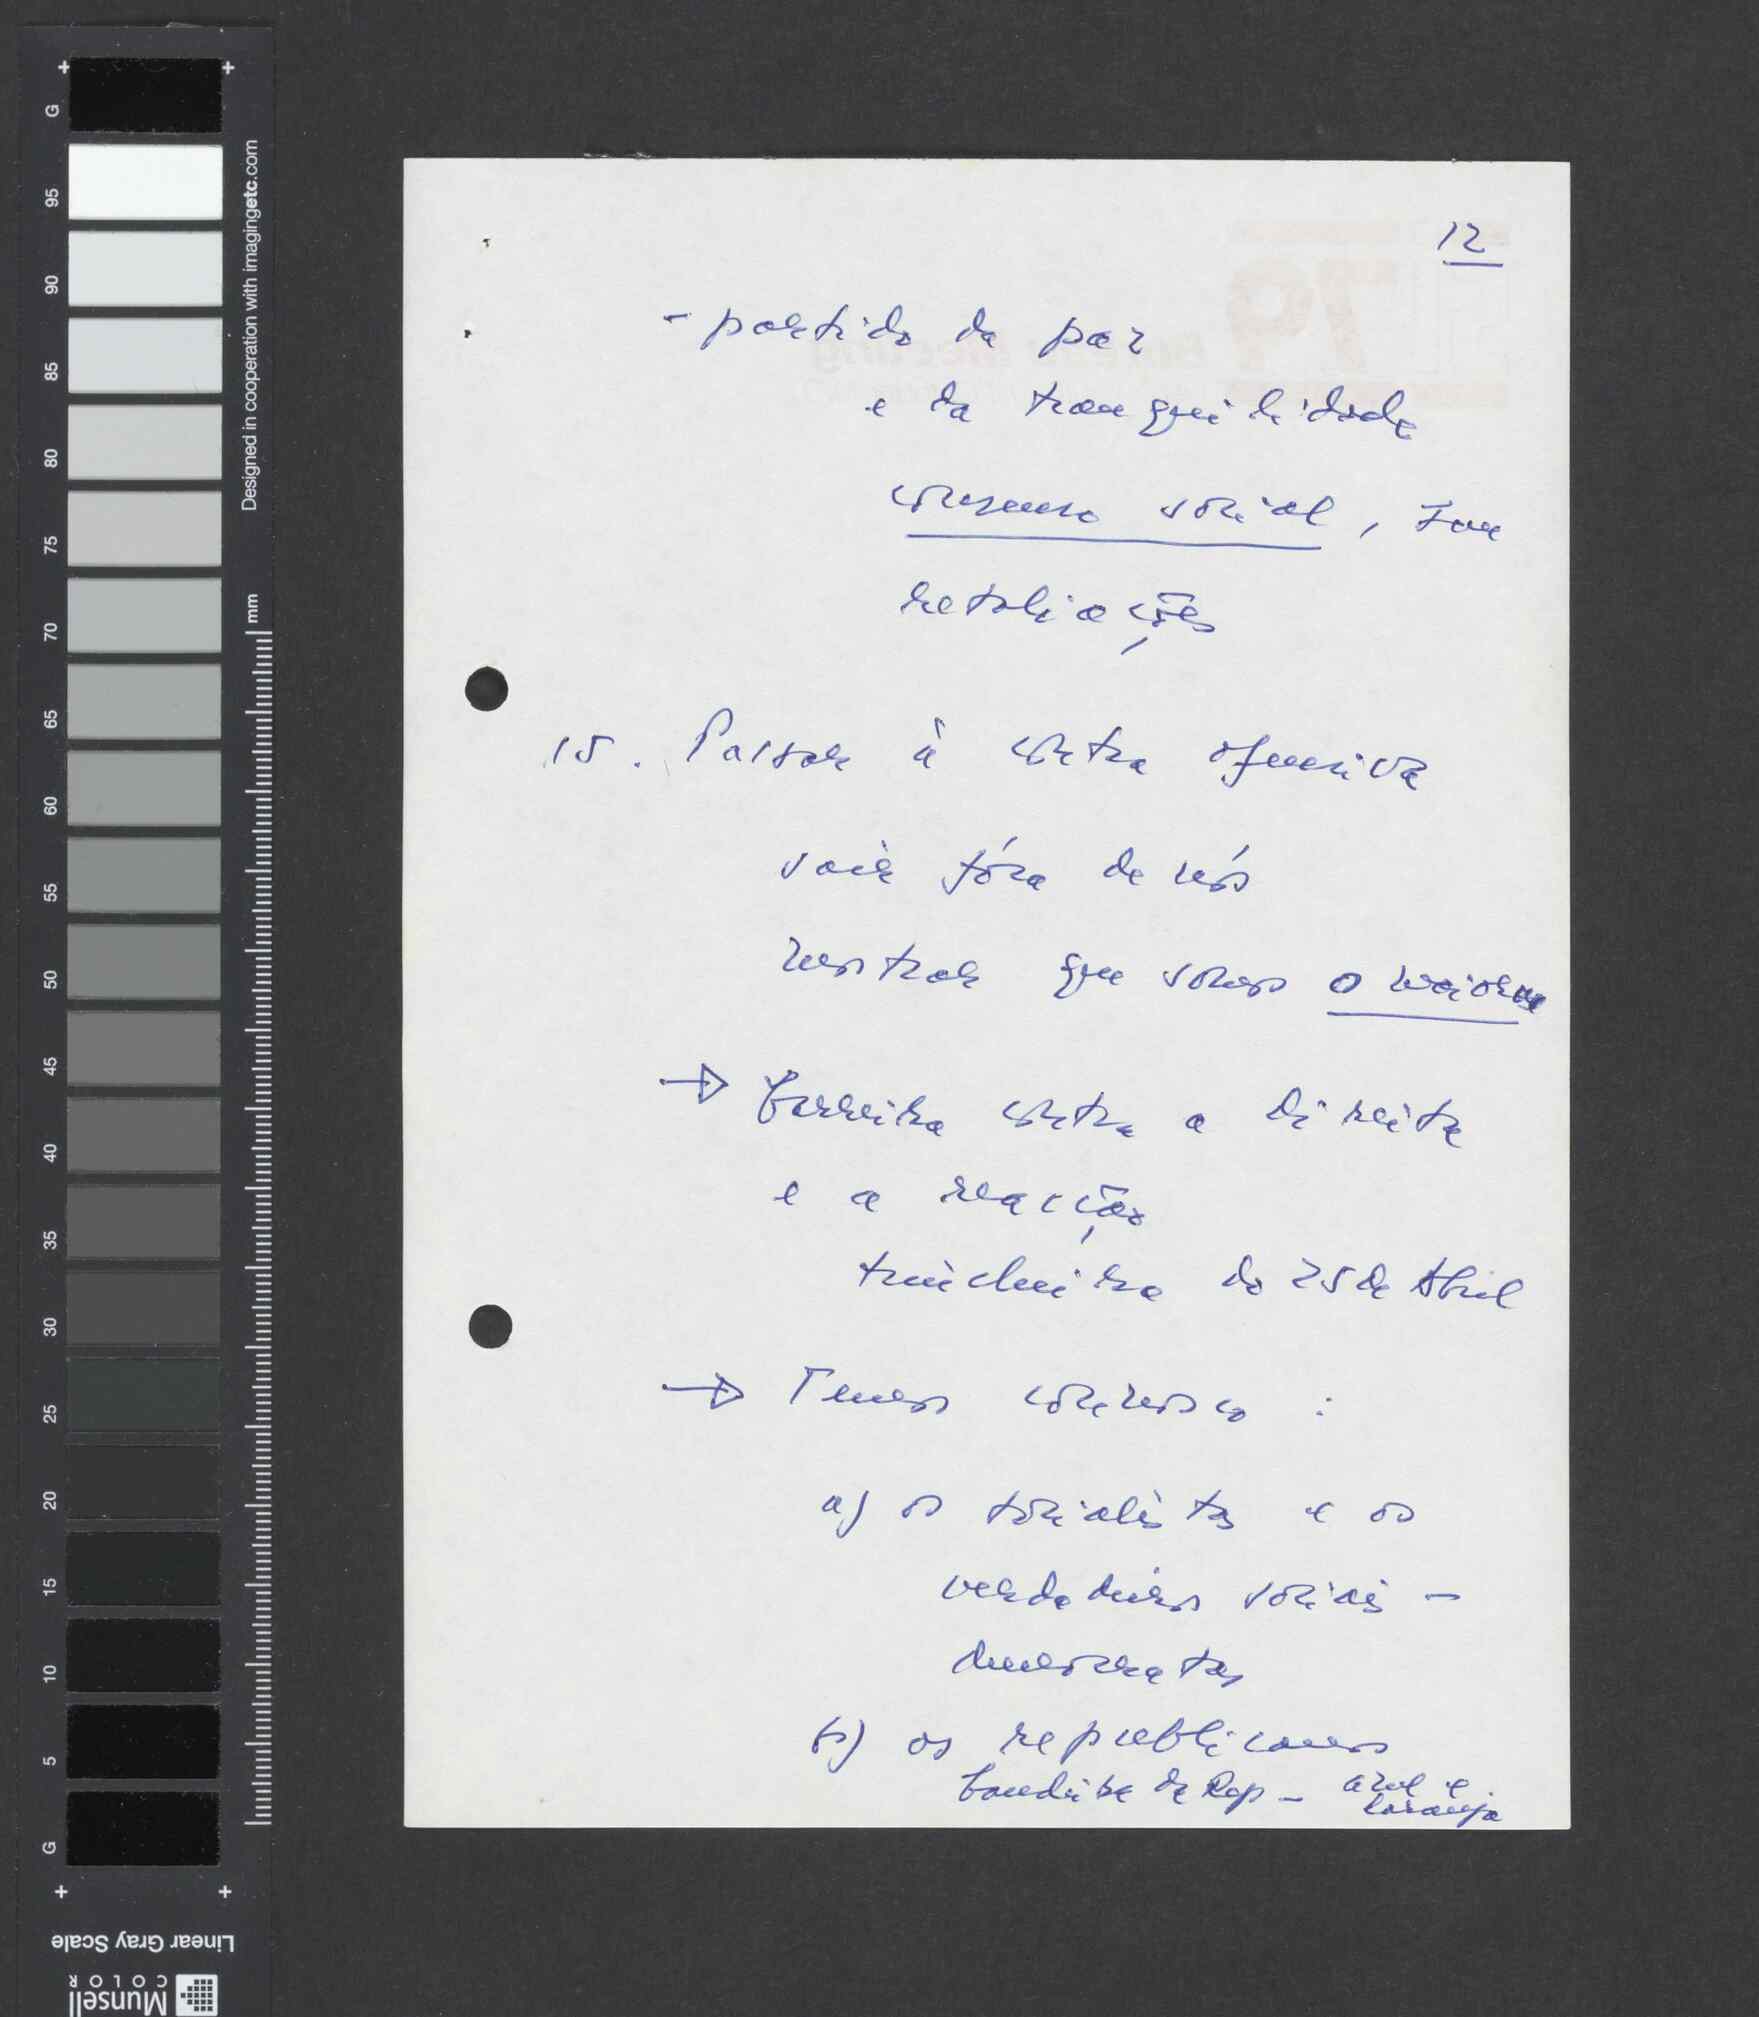 12
- partido da paz
e da tranquilidade
consenso social, sem
retaliações
15. Passar à contra ofensiva
sair fóra de nós
mostrar que somos o maior
→ Barreira contra a direita
e a reacção
trincheira do 25 de Abril
→ Temos connosco :
a) os socialistas e os
verdadeiros sociais -
democratas
b) os republicanos
bandeira da Rep - azul e
laranja
G
95
90
85
80
75
70
65
60
55
50
45
40
35
30
25
20
15
10
5
G
Designed in cooperation with imagingetc.com
mm
Linear Gray Scale
Munsell
COLOR
79
Bureau meeting